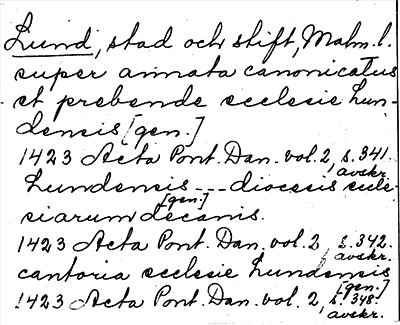 Lund, stad och stift, Malm. l.
super annata canonicatus
et prebende ecclesie Lun-
densis [gen.]
1423 Acta Pont. Dan. vol. 2, s. 341
avskr.
Lundensis --- diocesis eccle-
siarum decanis.
[gen.]
1423 Acta Pont. Dan. vol. 2, s. 342.
avskr.
cantoria ecclesie Lundensis
[gen.]
1423 Acta Pont. Dan. vol. 2, s. 348.
avskr.